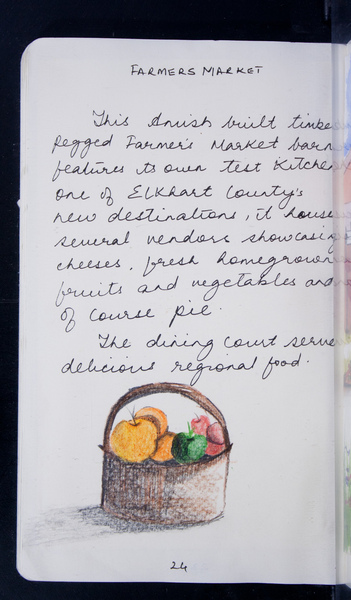 FARMERS MARKET
This Amish built timber
Pegged Farmer's Market barn
features its own test Kitchen
one of Elkhart County's
new destinations, it house
several vendors showcasing
cheeses, fresh homegrown
fruits and vegetables and
of course pie.
The dining court serve
delicious regional food.
24